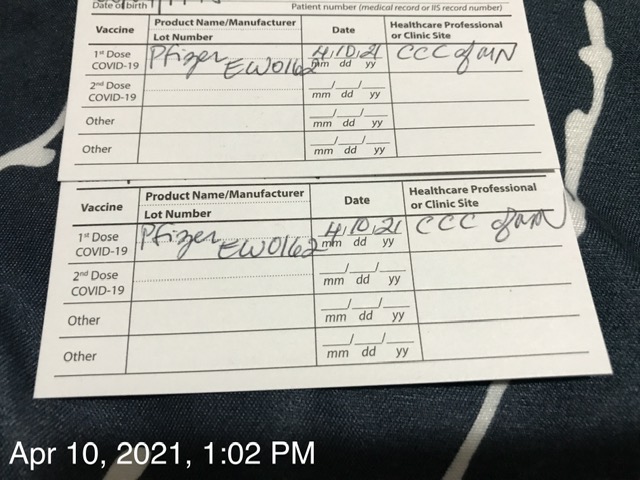 Date of birth Patient number (medical record or IIS record number)
Vaccine Product Name/Manufacturer Date Healthcare Professional
Lot Number or Clinic Site
1st Dose Pfizer 4/10/21 CCC of MN
COVID-19 EW0162 mm dd yy
2nd Dose __/__/__
COVID-19 mm dd yy
Other __/__/__
mm dd yy
Other __/__/__
mm dd yy
Vaccine Product Name/Manufacturer Date Healthcare Professional
Lot Number or Clinic Site
1st Dose Pfizer 4/10/21 CCC of MN
COVID-19 EW0162 mm dd yy
2nd Dose __/__/__
COVID-19 mm dd yy
Other __/__/__
mm dd yy
Other __/__/__
mm dd yy
Apr 10, 2021, 1:02 PM